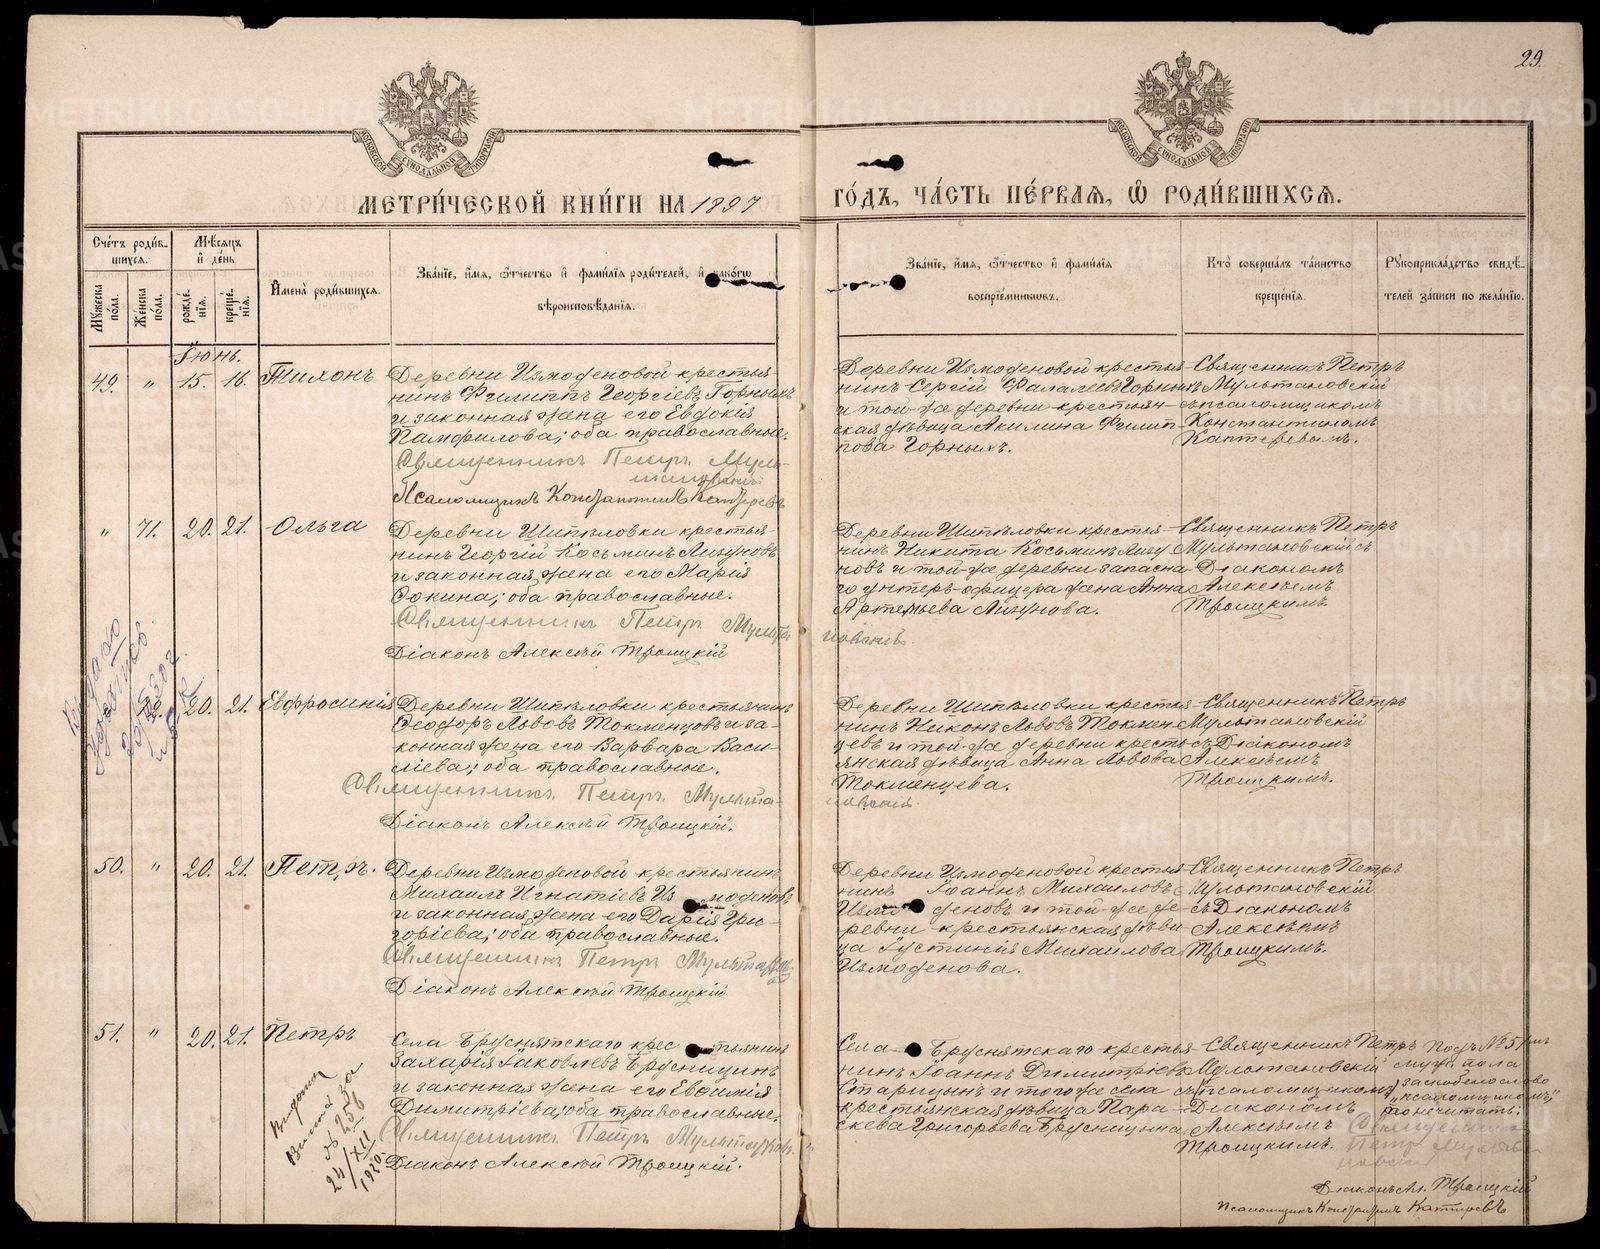 29.
МОСКОВСКОЙ СѴНОДАЛЬНОЙ ТИПОГРАФІИ
МОСКОВСКОЙ СѴНОДАЛЬНОЙ ТИПОГРАФІИ
МЕТРИ́ЧЕСКОЙ КНИ́ГИ НА 1897 ГО́ДЪ, ЧА́СТЬ ПЕ́РВАЯ, Ѡ҆ РОДИ́ВШИХСЯ.
Сче́тъ роди́в-
шихся.
Мꙋжеска по́ла.
Же́нска по́ла.
Мѣ́сяцъ
и҆ де́нь
рожде́нїя.
креще́нїя.
И҆мена̀ роди́вшихся.
Зва́нїе, и҆́мя, ѻ҆́тчество и҆ фами́лїя роди́телей, и҆ како́гѡ
вѣроисповѣ́данїя.
Зва́нїе, и҆́мя, ѻ҆́тчество и҆ фами́лїя
воспрїе́мниковъ.
Кто̀ соверша́лъ та́инство
креще́нїя.
Рꙋкоприкла́дство свидѣ́-
телей за́писи по жела́нїю.
Іюнь.
49. " 15. 16. Тихонъ
Деревни Измоденовой крестья-
нинъ Филиппъ Георгіевъ Горныхъ
и законная жена его Евдокія
Памфилова; оба православные.
Священникъ Петръ Муль-
тановскій
Псаломщикъ Константинъ Каптеревъ
Деревни Измоденовой крестья-
нинъ Сергій Фалалеевъ Горныхъ
и той-же деревни крестьян-
ская дѣвица Акилина Филип-
пова Горныхъ.
Священникъ Петръ
Мультановскій
съ псаломщикомъ
Константиномъ
Каптеревымъ.
" 71. 20. 21. Ольга
Деревни Шипѣловки крестья-
нинъ Георгій Косьминъ Лизуновъ
и законная жена его Марія
Фокина; оба православные.
Священникъ Петръ Мульта
новскій.
Діаконъ Алексѣй Троицкій
Деревни Шипѣловки крестья-
нинъ Никита Косьминъ Лизу
новъ и той-же деревни запасна-
го унтеръ-офицера жена Анна
Артемьева Лизунова.
Священникъ Петръ
Мультановскій съ
Діакономъ
Алексѣемъ
Троицкимъ.
20. 21. Евфросинія
Деревни Шипѣловки крестьянинъ
Ѳеодоръ Львовъ Токменцовъ и за-
конная жена его Варвара Васи-
ліева; оба православные.
Священникъ Петръ Мульта-
новскій.
Діаконъ Алексѣй Троицкій.
Деревни Шипѣловки крестья-
нинъ Никонъ Львовъ Токмен
цевъ и той-же деревни кресть
янская дѣвица Анна Львова
Токменцева.
Священникъ Петръ
Мультановскій
съ Діакономъ
Алексѣемъ
Троицкимъ.
50. " 20. 21. Петръ.
Деревни Измоденовой крестьянинъ
Михаилъ Игнатіевъ Измоденовъ
и законная жена его Дарія Гри-
горіева; оба православные.
Священникъ Петръ Мультановскій
Діаконъ Алексѣй Троицкій
Деревни Измоденовой крестья-
нинъ Іоаннъ Михаиловъ
Измоденовъ и той-же де-
ревни крестьянская дѣви-
ца Іустинія Михаилова
Измоденова.
Священникъ Петръ
Мультановскій
съ Діакономъ
Алексѣемъ
Троицкимъ.
51. " 20. 21. Петръ
Села Бруснятскаго крестьянинъ
Захарія Іаковлевъ Брусницинъ
и законная жена его Евѳимія
Димитріева; оба православные.
Священникъ Петръ Мультановскій
Діаконъ Алексѣй Троицкій.
Села Бруснятскаго крестья-
нинъ Іоаннъ Димитріевъ
Старицынъ и того же села
крестьянская дѣвица Пара-
скева Григорьева Брусницына
Священникъ Петръ
Мультановскій
съ (псаломщикомъ)
Діакономъ
Алексѣемъ
Троицкимъ.
Подъ № 51мъ
муж. пола
за скобено слово
"псаломщикомъ",
не читать:
Священникъ
Петръ Мульта-
новскій
Діаконъ Ал. Троицкій
Псаломщикъ Константинъ Каптеревъ
Выдана
за
№ 256
24/XII
1920.